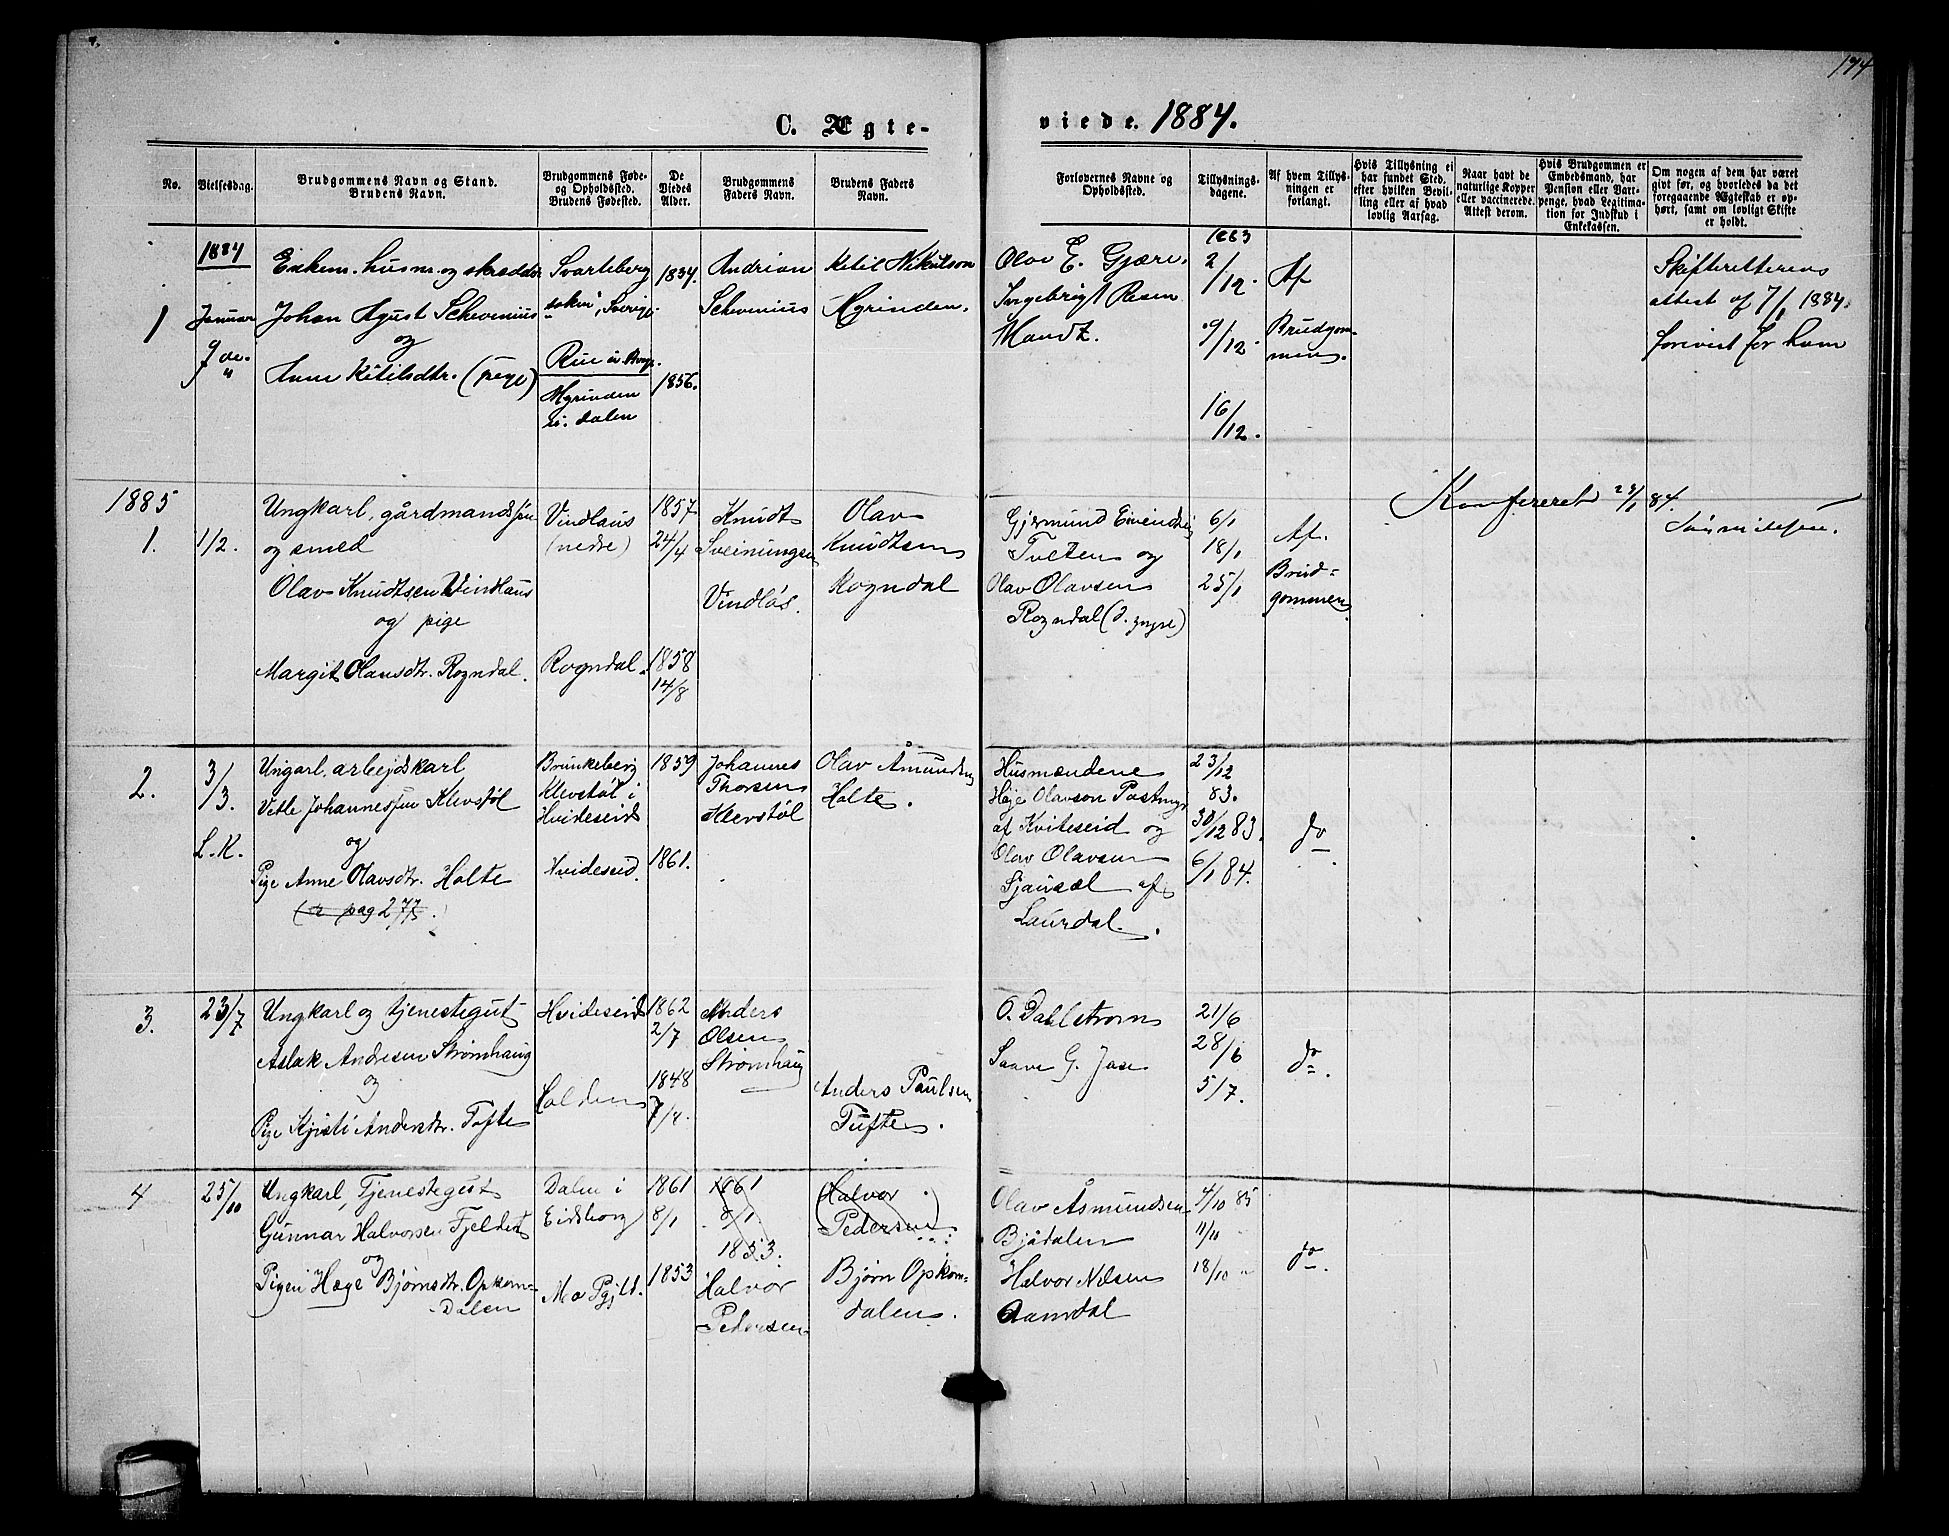 174
C. Ægte-
viede. 1884.
No.
Vielsesdag.
Brudgommens Navn og Stand.
Brudens Navn.
Brudgommens Føde-
og Opholdssted.
Brudens Fødested.
De
Viedes
Alder.
Brudgommens
Faders Navn.
Brudens Faders
Navn.
Forlovernes Navne og
Opholdssted.
Tillysnings-
dagene.
Af hvem Tillys-
ningen er
forlangt.
Hvis Tillysning ei
har fundet Sted,
efter hvilken Bevil-
ling eller af hvad
lovlig Aarsag.
Naar havt de
naturlige Kopper
eller vaccinerede.
Attest derom.
Hvis Brudgommen er
Embedsmand, har
Pension eller Vart-
penge, hvad Legitima-
tion for Indskud i
Enkekassen.
Om nogen af dem har været
givt før, og hvorledes da det
foregaaende Ægteskab er op-
hørt, samt om lovligt Skifte
er holdt.
1884
1
Januar
9 de.
"
Enkem. husm. og skrædder
Johan Agust Schevenius
og
Anne Ketilsdtr. (pige)
Svarteberg
sokn, Sverige.
Rue
Mgrinden
i. dalen
1834.
1856.
Andrian
Schevenius
Ketil Nikulson
Mgrinden.
Olav E. Gjære.
Ingebrigt Resen
Mandt.
1883
2/12.
9/12.
16/12.
Af
Brudgom-
men.
Skifterettens
attest af 7/1 1884.
forevist for ham
Konfereret 23/1 84.
1885
1.
1/2.
Ungkarl, gårdmandssøn
og smed
Olav Knudtsen Vindlaus
og pige
Margit Olavsdtr. Rogndal.
Vindlaus
(nedre)
Rogndal.
1857
24/4
1858
14/8
Knudt
Sveinungsen
Vindlås.
Olav
Knudtsen
Rogndal
Gjermund Eivendsen
Tveten og
Olav Olavsen
Rogndal (d. yngre)
6/1
18/1
25/1
Af.
Brud=
gommen
2.
3/3.
L.K.
Ungarl, arbejdskarl
Vetle Johannessen Klevstøl
og
Pige Anne Olavsdtr. Holte
(se pag 277.)
Brunkeberg
Klevstøl i
Hvideseid
Hvideseid.
1859
1861.
Johannes
Thorsen
Klevstøl
Olav Åmundsen
Holte.
Husmændene
Høje Olavson Pastmyr
af Kviteseid og
Olav Olavsen
Sjausæl af
Laurdal.
23/12
83.
30/12 83.
6/1 84.
do
3.
23/7
Ungkarl og tjenestegut
Aslak Andresen Strømhaug
og
Pige Kjisti Andersdtr. Tofte
Hvideseid
Holden
1862
2/7
1848
7/4.
Anders
Olsen
Strømhaug
Anders Paulsen
Tufte.
O. Dahlstrøm
Saave G. Jase
21/6
28/6
5/7.
do
4
25/10
Ungkarl, Tjenestegut
Gunnar Halvorsen Fjeldet
og
Pigen Hæge Bjørnsdtr. Opkom-
Dalen
Dalen i
Eidsborg
Mo Pgjld.
1861
8/1
1853
1861
8/1
1853.
Halvor
Pedersen
(Halvor
Pedersen)
Bjørn Opkom-
dalen.
Olav Åsmundsen
Bjådalen
Halvor Nilsen
Aamdal
4/10 85
11/10
18/10 "
do